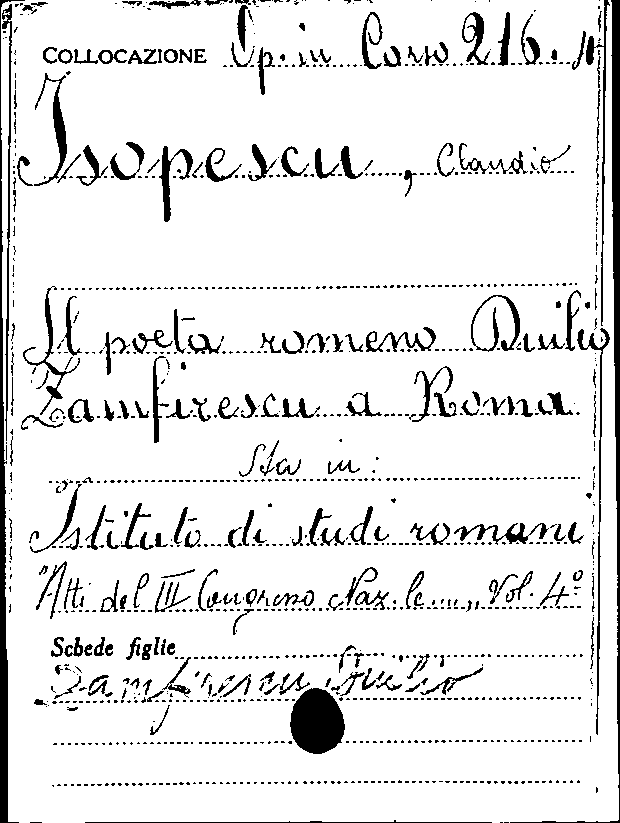 COLLOCAZIONE Op. in Corso 216. 4
Isopescu, Claudio
Il poeta romeno Duilio
Zamfirescu a Roma
Sta in:
Istituto di studi romani
"Atti del III Congresso Naz. le....," Vol. 4º
Schede figlie
Zamfirescu Duilio